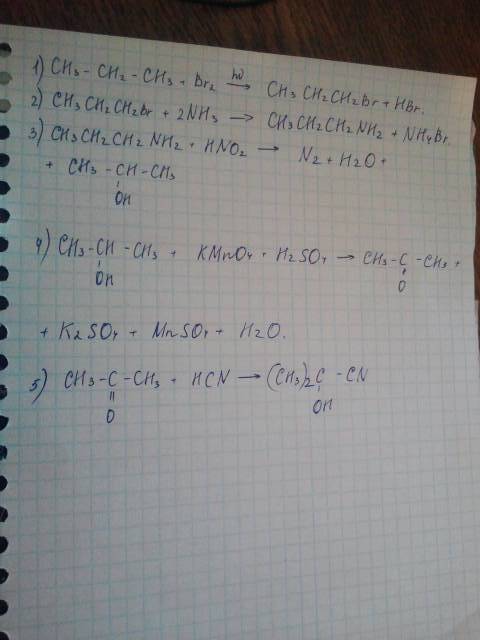 1) CH3 - CH2 - CH3 + Br2 hν → CH3 CH2CH2Br + HBr.
2) CH3CH2CH2Br + 2NH3 → CH3CH2CH2 NH2 + NH4Br.
3) CH3CH2CH2 NH2 + HNO2 → N2 + H2O +
+ CH3 - CH - CH3
OH
4) CH3 - CH - CH3 + KMnO4 + H2SO4 → CH3 - C - CH3 +
OH O
+ K2SO4 + MnSO4 + H2O.
5) CH3 - C - CH3 + HCN → (CH3)2C - CN
O OH